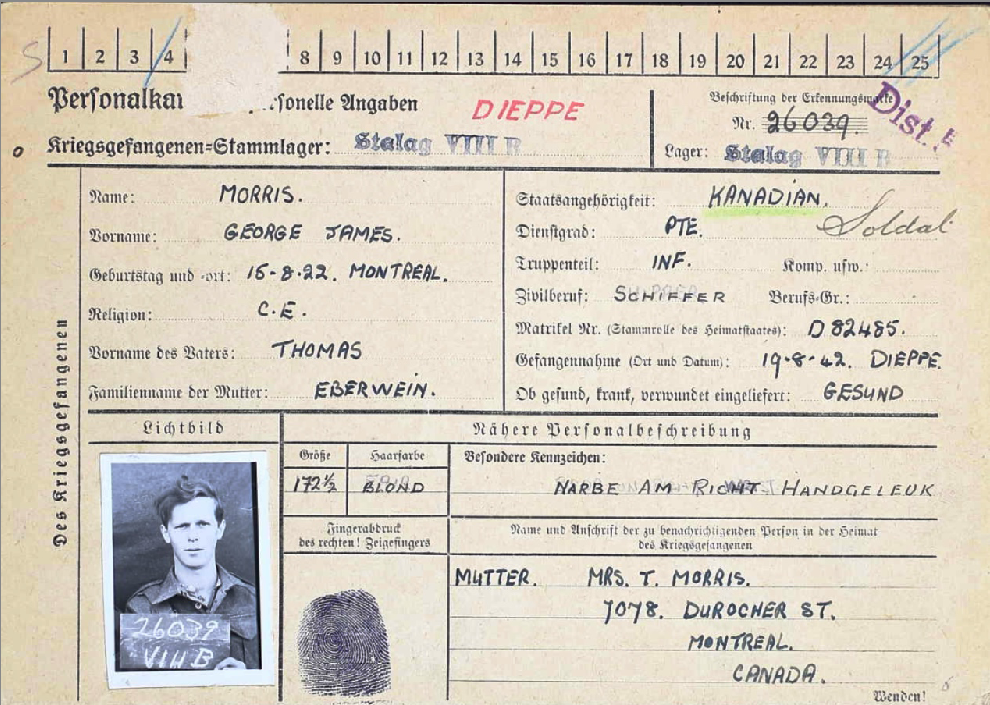 S 1 2 3 4 8 9 10 11 12 13 14 15 16 17 18 19 20 21 22 23 24 25
Personalkar rsonelle Angaben DIEPPE
Beschriftung der Erkennungsmarke
Nr. 26039.
Dist.
Kriegsgefangenen=Stammlager: Stalag VIII B
Lager: Stalag VIII B
Des Kriegsgefangenen
Name: MORRIS.
Vorname: GEORGE JAMES.
Geburtstag und -ort: 16-8-22. MONTREAL.
Religion: C.E.
Vorname des Vaters: THOMAS
Familienname der Mutter: EBERWEIN.
Staatsangehörigkeit: KANADIAN.
Dienstgrad: PTE. Soldat
Truppenteil: INF. Komp. usw.:
Zivilberuf: SCHIFFER Berufs-Gr.:
Matrikel Nr. (Stammrolle des Heimatstaates): D82485.
Gefangennahme (Ort und Datum): 19-8-42. DIEPPE.
Ob gesund, krank, verwundet eingeliefert: GESUND
Lichtbild
26039
VIII B
Nähere Personalbeschreibung
Größe Haarfarbe
172½ BLOND
Besondere Kennzeichen:
NARBE AM RICHT HANDGELEUK
Fingerabdruck
des rechten! Zeigefingers
Name und Anschrift der zu benachrichtigenden Person in der Heimat
des Kriegsgefangenen
MUTTER. MRS. T. MORRIS.
7078. DUROCHER ST.
MONTREAL.
CANADA.
Wenden!